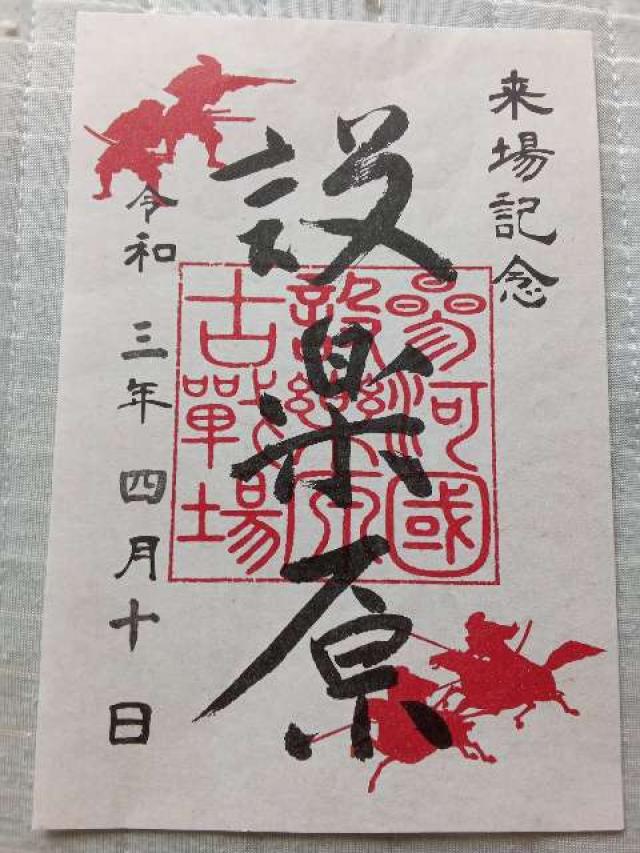 来場記念
設楽原
參河國
設樂原
古戰場
令和 三年 四月 十日